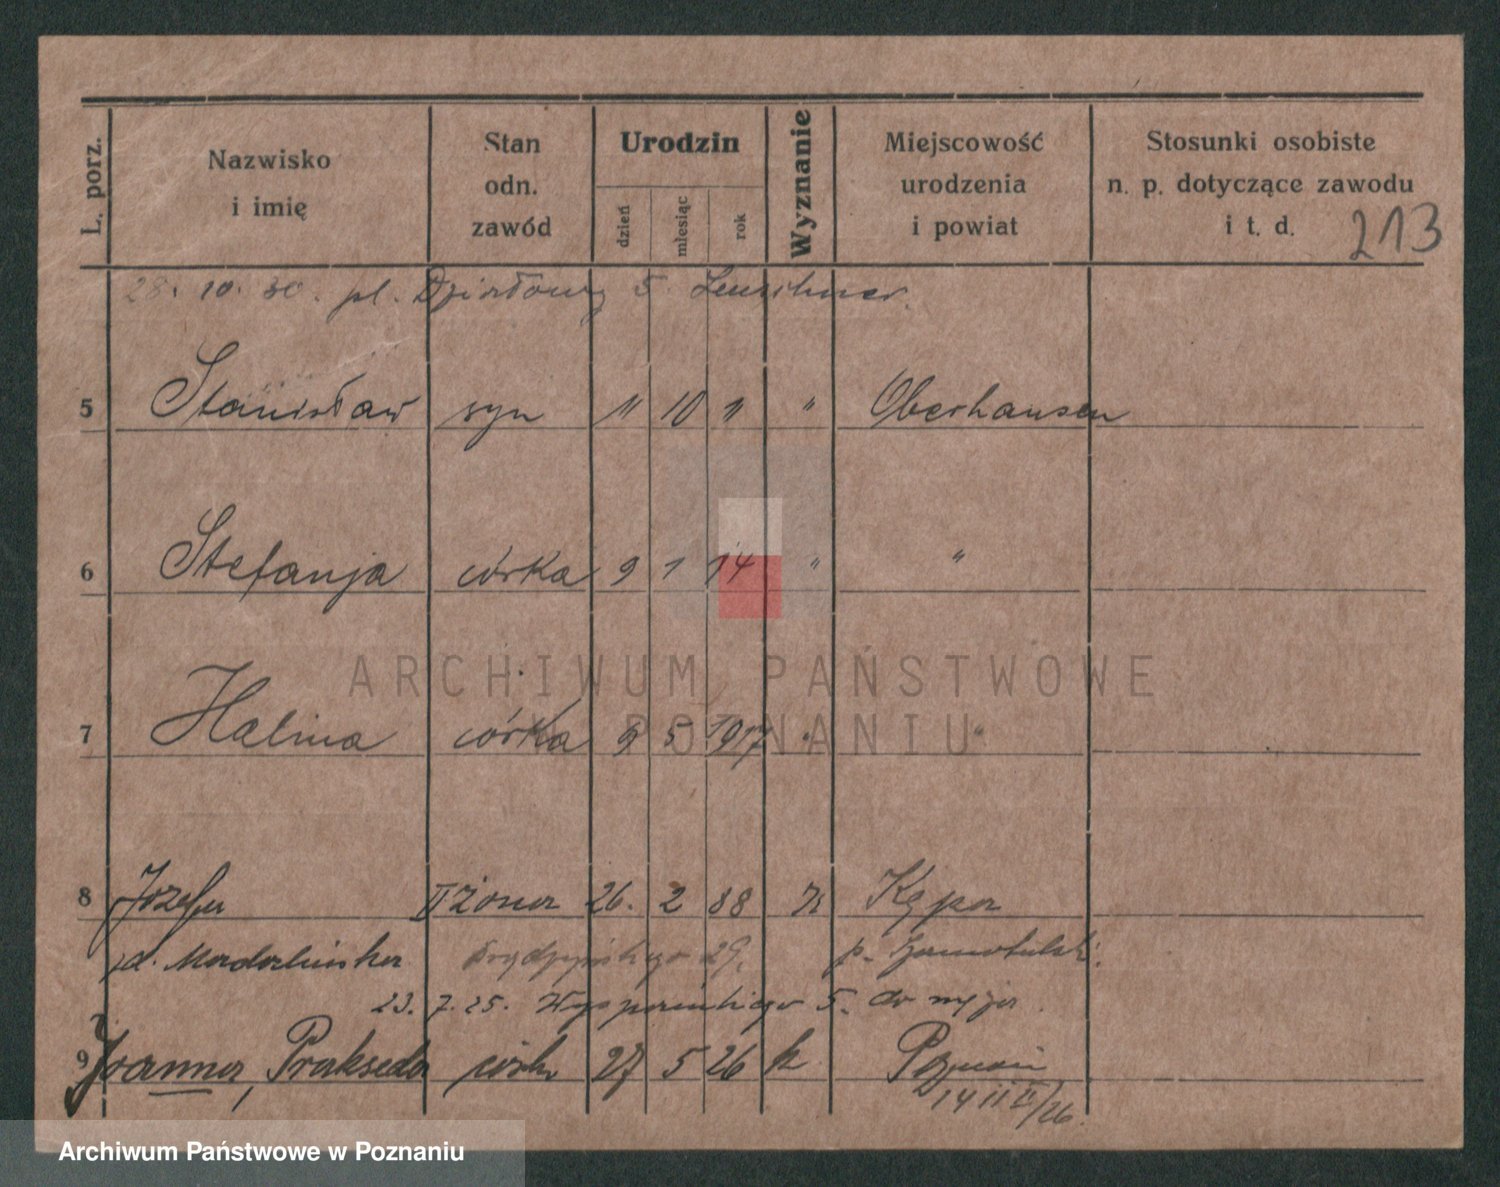 L. porz. Nazwisko i imię Stan odn. zawód Urodzin dzień miesiąc rok Wyznanie Miejscowość urodzenia i powiat Stosunki osobiste n. p. dotyczące zawodu i t. d. 213
28. 10. 30. pl. Działowy 5 Leuschner.
5 Stanisław syn " 10 " " Oberhausen
6 Stefanja córka 9 1 14 " "
ARCHIWUM PAŃSTWOWE
W POZNANIU
7 Halina córka 9 5 1917 " "
8 Józefa II żona 26. 2 88 k
29.
23. 7. 25. Wyspiańskiego 5. do męża.
9 Joanna, Prakseda córka 27 5 26 k Poznań
Archiwum Państwowe w Poznaniu